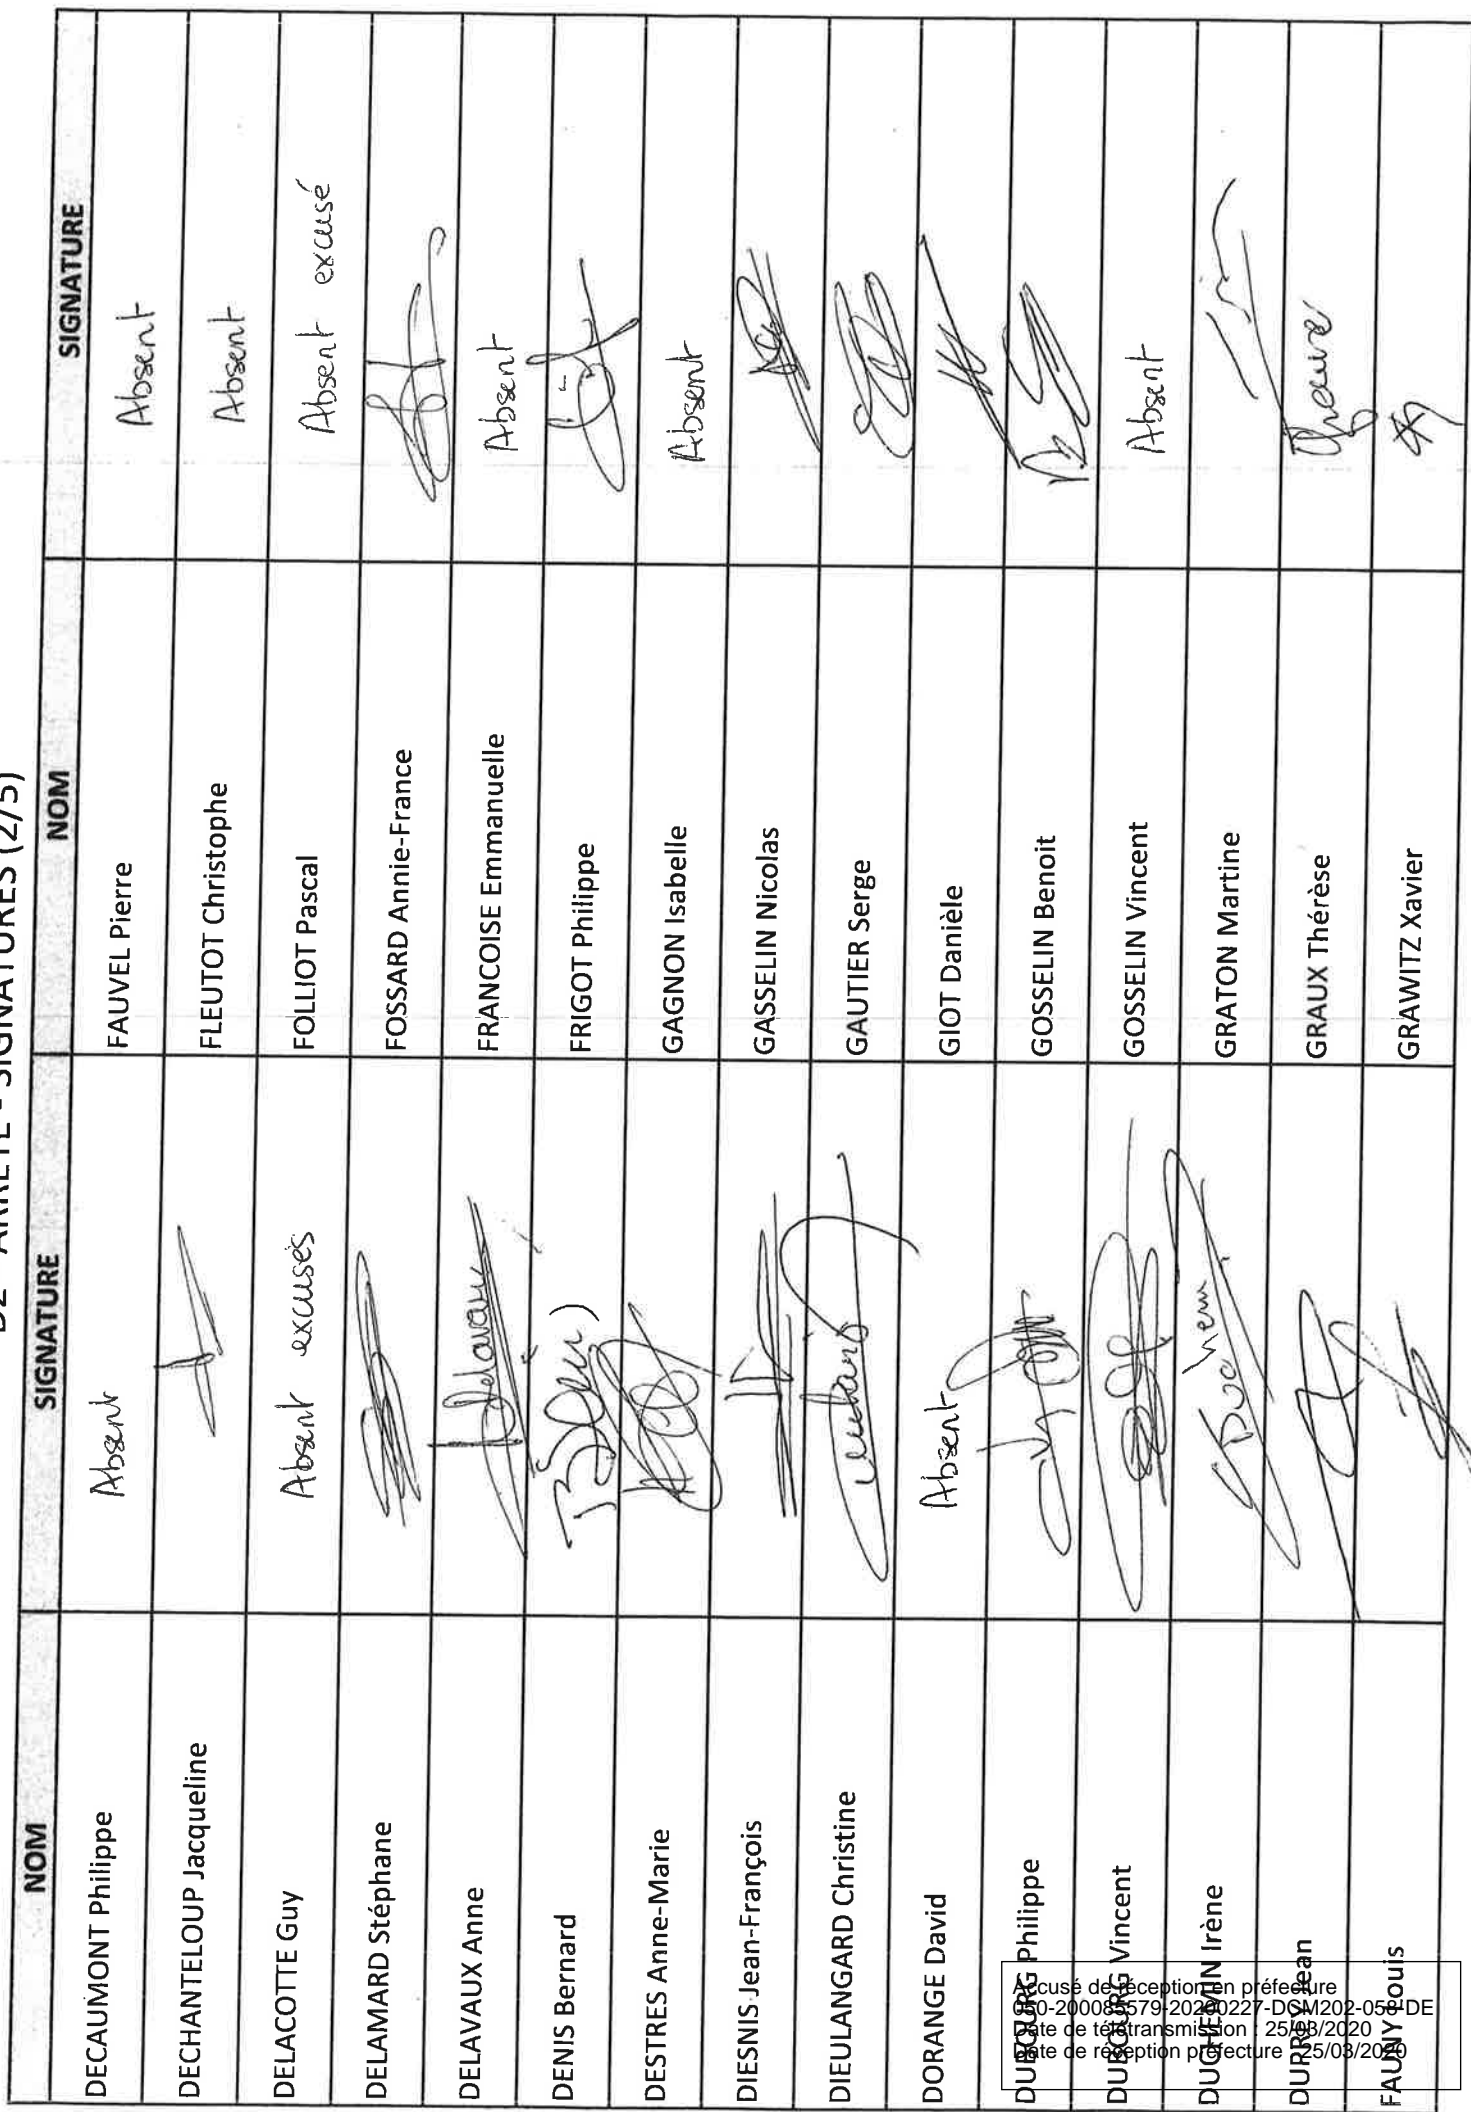 ARRETE - SIGNATURES (2/5)
NOM SIGNATURE NOM SIGNATURE
DECAUMONT Philippe Absent FAUVEL Pierre Absent
DECHANTELOUP Jacqueline FLEUTOT Christophe Absent
DELACOTTE Guy Absent excusés FOLLIOT Pascal Absent excusé
DELAMARD Stéphane FOSSARD Annie-France
DELAVAUX Anne Delavaux FRANCOISE Emmanuelle Absent
DENIS Bernard FRIGOT Philippe
DESTRES Anne-Marie GAGNON Isabelle Absent
DIESNIS Jean-François GASSELIN Nicolas
DIEULANGARD Christine GAUTIER Serge
DORANGE David Absent GIOT Danièle
DUBOURG Philippe GOSSELIN Benoit
DUBOURG Vincent GOSSELIN Vincent Absent
DUCHEMIN Irène GRATON Martine
Jean GRAUX Thérèse
FAUNY Louis GRAWITZ Xavier
Accusé de réception en préfecture
Date de télétransmission : 25/03/2020
Date de réception préfecture : 25/03/2020